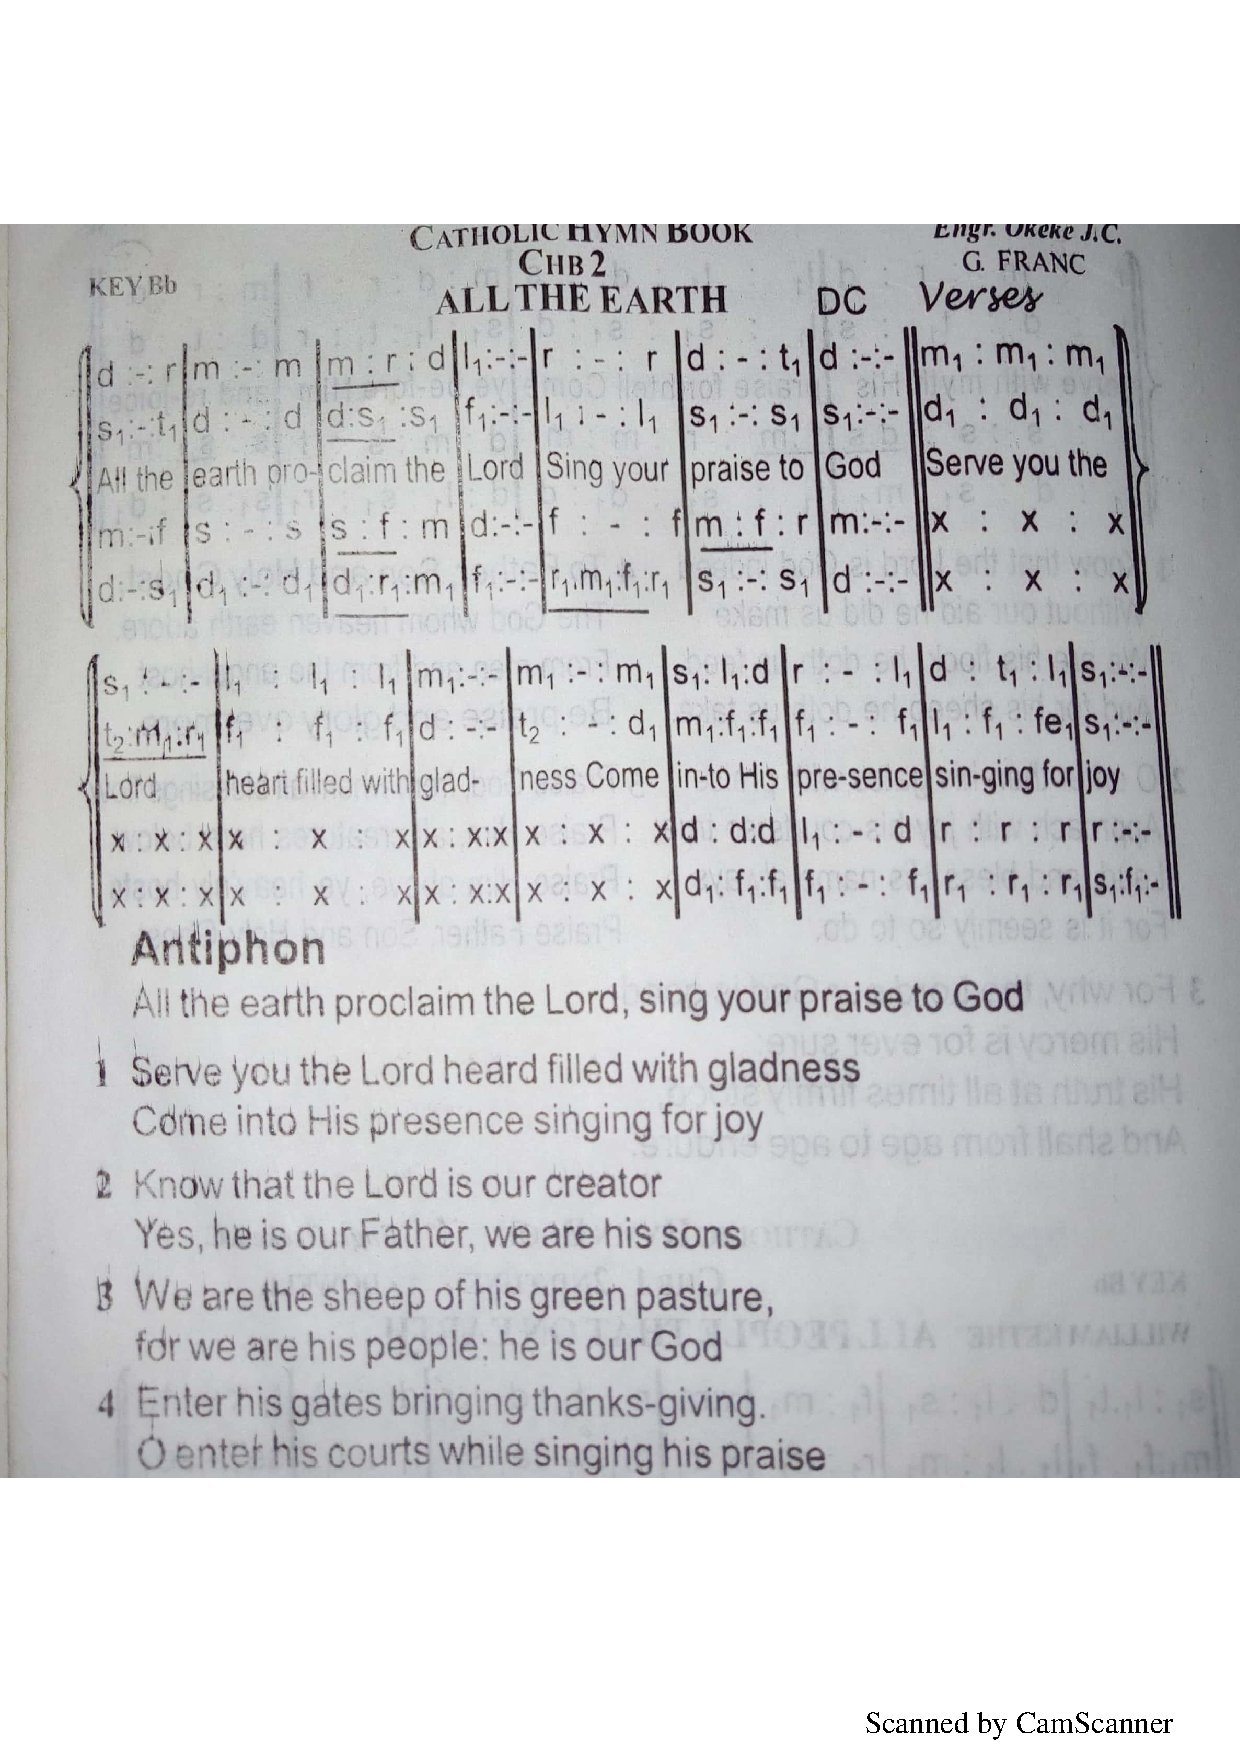 CATHOLIC HYMN BOOK
Engr. Okeke J.C.
CHB 2
G. FRANC
KEY Bb
ALL THE EARTH
DC
Verses
d :-: r | m :-: m | m : r : d | l₁:-:- | r : - : r | d : - : t₁ | d :-:- || m₁ : m₁ : m₁
s₁:-:t₁ | d : - : d | d:s₁ :s₁ | f₁:-:- | l₁ : - : l₁ | s₁ :-: s₁ | s₁:-:- || d₁ : d₁ : d₁
All the | earth pro- | claim the | Lord | Sing your | praise to | God || Serve you the
m:-:f | s : - : s | s : f : m | d:-:- | f : - : f | m : f : r | m:-:- || x : x : x
d:-:s₁ | d₁ :-: d₁ | d₁:r₁:m₁ | f₁:-:- | r₁.m₁:f₁:r₁ | s₁ :-: s₁ | d :-:- || x : x : x
s₁ : - :- | l₁ : l₁ : l₁ | m₁:-:- | m₁ :- : m₁ | s₁: l₁:d | r : - : l₁ | d : t₁ : l₁ | s₁:-:- ||
t₂:m₁:r₁ | f₁ : f₁ : f₁ | d : -:- | t₂ : - : d₁ | m₁:f₁:f₁ | f₁ : - : f₁ | l₁ : f₁ : fe₁ | s₁:-:- ||
Lord | heart filled with | glad- | ness Come | in-to His | pre-sence | sin-ging for | joy
x : x : x | x : x : x | x : x:x | x : x : x | d : d:d | l₁ : - : d | r : r : r | r :-:- ||
x : x : x | x : x : x | x : x:x | x : x : x | d₁: f₁:f₁ | f₁ : - : f₁ | r₁ : r₁ : r₁ | s₁:f₁:- ||
Antiphon
All the earth proclaim the Lord, sing your praise to God
1 Serve you the Lord heard filled with gladness
Come into His presence singing for joy
2 Know that the Lord is our creator
Yes, he is our Father, we are his sons
3 We are the sheep of his green pasture,
for we are his people: he is our God
4 Enter his gates bringing thanks-giving.
O enter his courts while singing his praise
Scanned by CamScanner